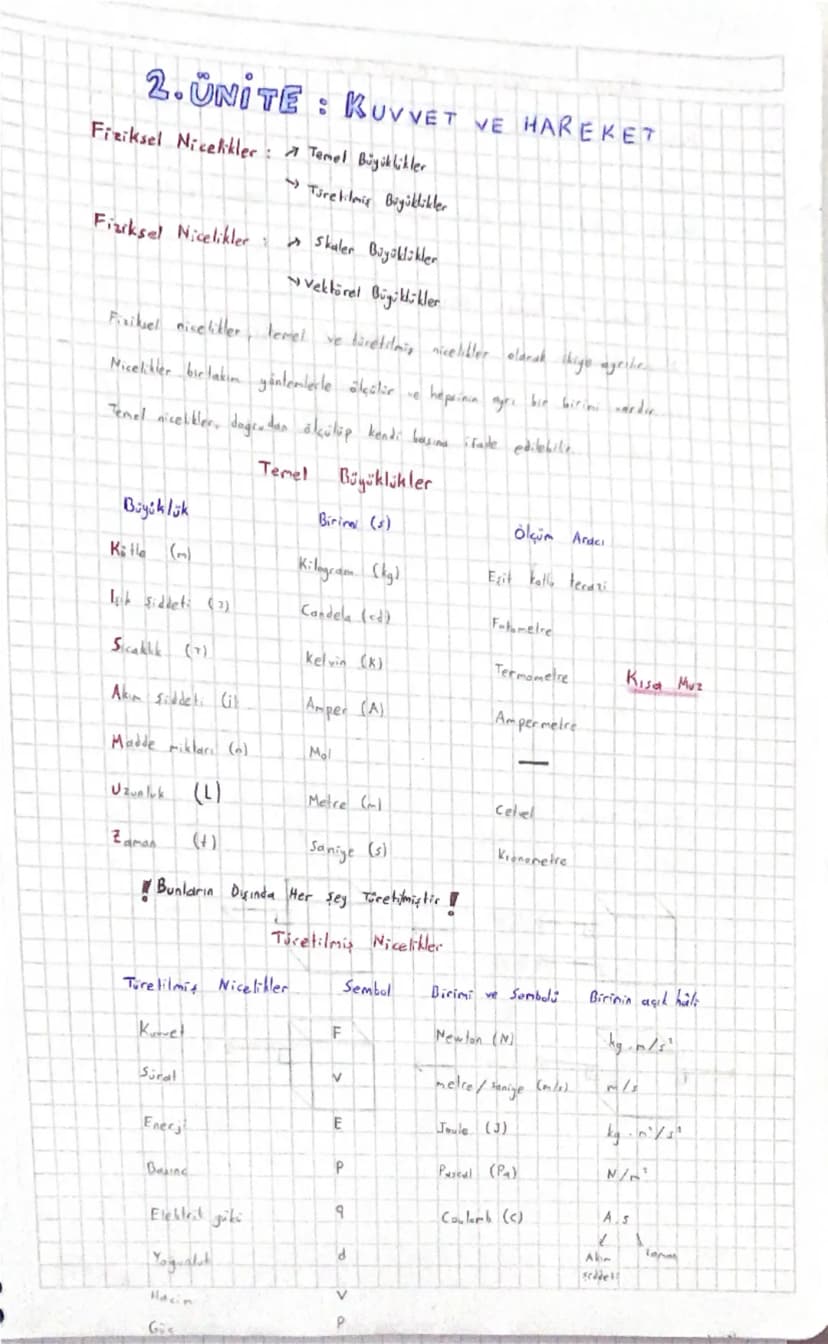 2. ÜNİTE : KUVVET VE HAREKET
Fiziksel Nicelikler : ↗ Temel Büyüklükler
↘ Türetilmiş Büyüklükler
Fiziksel Nicelikler : ↗ Skaler Büyüklükler
↘ Vektörel Büyüklükler
Fiziksel nicelikler, temel ve türetilmiş nicelikler olarak ikiye ayrılır.
Nicelikler birtakım yöntemlerle ölçülür ve hepsinin ayrı bir birimi vardır.
Temel nicelikler, doğrudan ölçülüp kendi başına ifade edilebilir.
Temel Büyüklükler
Büyüklük Birimi (s) Ölçüm Aracı
Kütle (m) Kilogram (kg) Eşit kollu terazi
Işık şiddeti (J) Candela (cd) Fotometre
Sıcaklık (T) Kelvin (K) Termometre Kısa Muz
Akım şiddeti (i) Amper (A) Ampermetre
Madde miktarı (n) Mol —
Uzunluk (L) Metre (m) Cetvel
Zaman (t) Saniye (s) Kronometre
! Bunların Dışında Her Şey Türetilmiştir !
Türetilmiş Nicelikler
Türetilmiş Nicelikler Sembol Birimi ve Sembolü Birimin açık hâli
Kuvvet F Newton (N) kg.m/s²
Sürat v metre/saniye (m/s) m/s
Enerji E Joule (J) kg.m²/s²
Basınç P Pascal (Pa) N/m²
Elektrik yükü q Coulomb (C) A.s
Akım şiddeti zaman
Yoğunluk d
Hacim V
Güç P